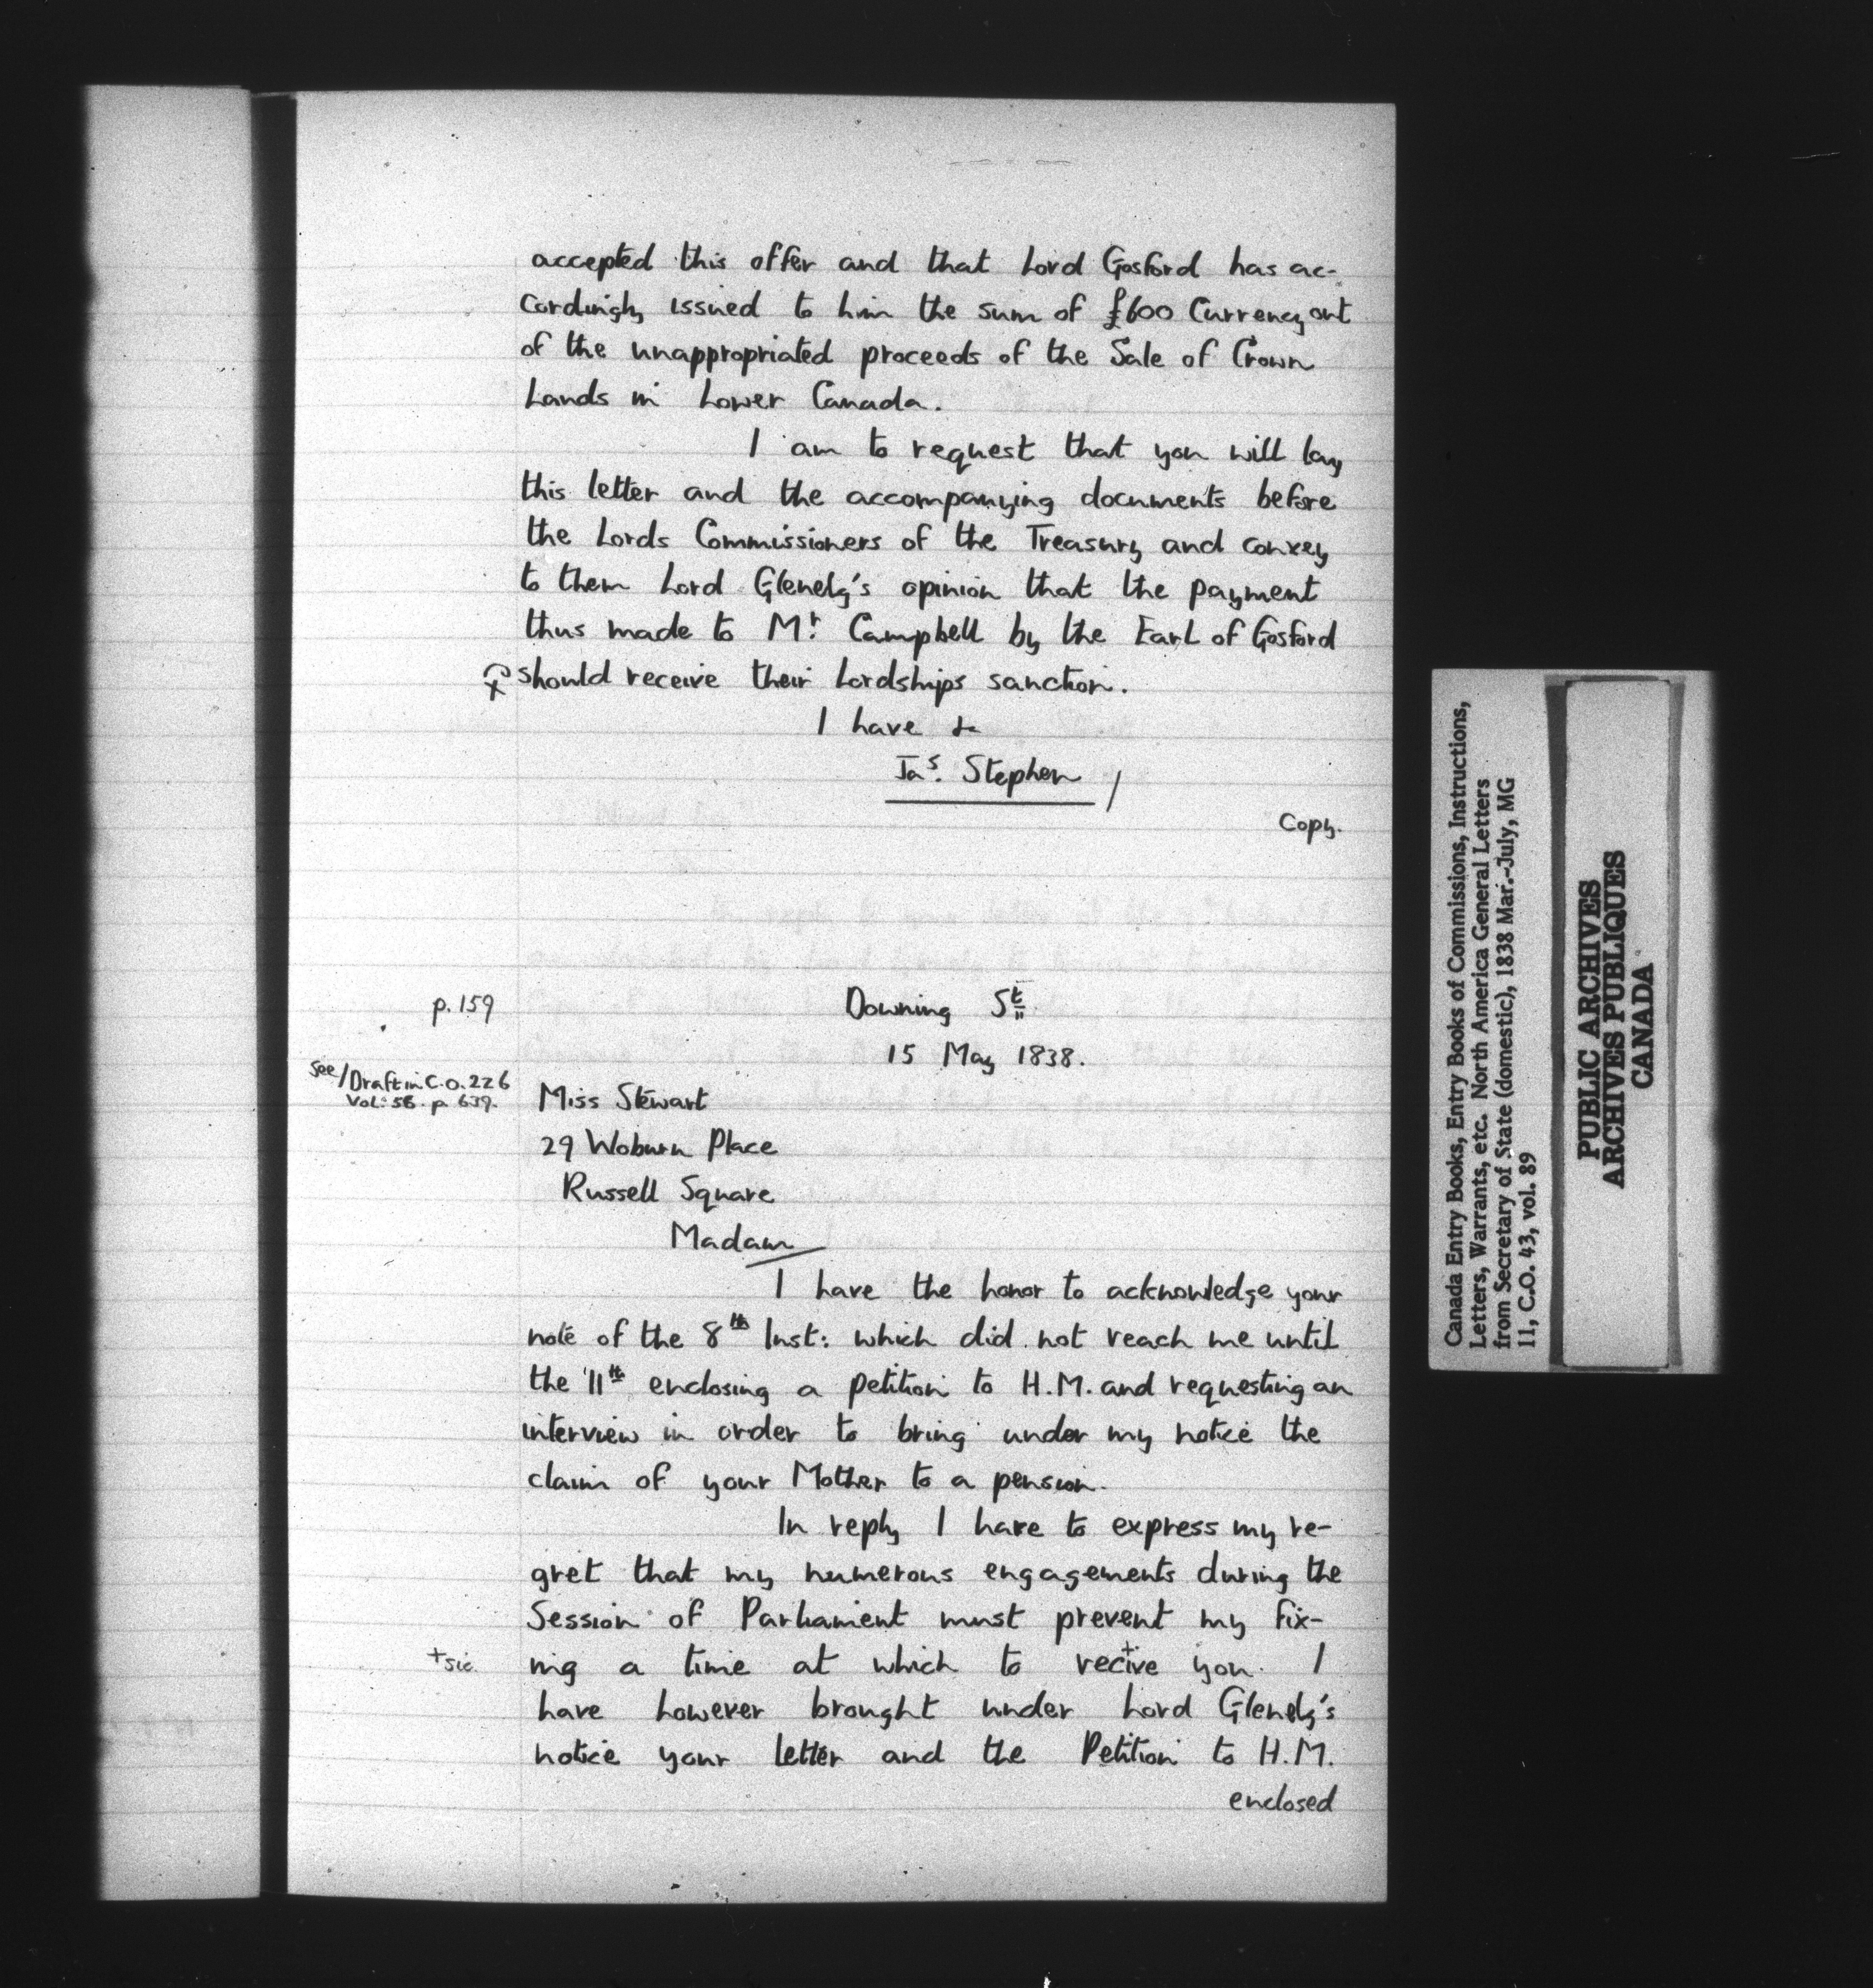 accepted this offer and that Lord Gosford has ac-
cordingly issued to him the sum of £600 Currency out
of the unappropriated proceeds of the Sale of Crown
Lands in Lower Canada.
I am to request that you will lay
this letter and the accompanying documents before
the Lords Commissioners of the Treasury and convey
to them Lord Glenelg's opinion that the payment
thus made to Mr. Campbell by the Earl of Gosford
should receive their Lordships sanction.
I have &
Jas. Stephen /
Copy.
p. 159
Downing St
15 May 1838.
See/Draft in C.O. 226
Vol: 58. p. 639.
Miss Stewart
29 Woburn Place
Russell Square
Madam
I have the honor to acknowledge your
note of the 8th Inst: which did not reach me until
the 11th enclosing a petition to H.M. and requesting an
interview in order to bring under my notice the
claim of your Mother to a pension.
In reply I have to express my re-
gret that my numerous engagements during the
Session of Parliament must prevent my fix-
+sic.
ing a time at which to recive+ you. I
have however brought under Lord Glenelg's
notice your letter and the Petition to H.M.
enclosed
Canada Entry Books, Entry Books of Commissions, Instructions,
Letters, Warrants, etc. North America General Letters
from Secretary of State (domestic), 1838 Mar.-July, MG
11, C.O. 43, vol. 89
PUBLIC ARCHIVES
ARCHIVES PUBLIQUES
CANADA